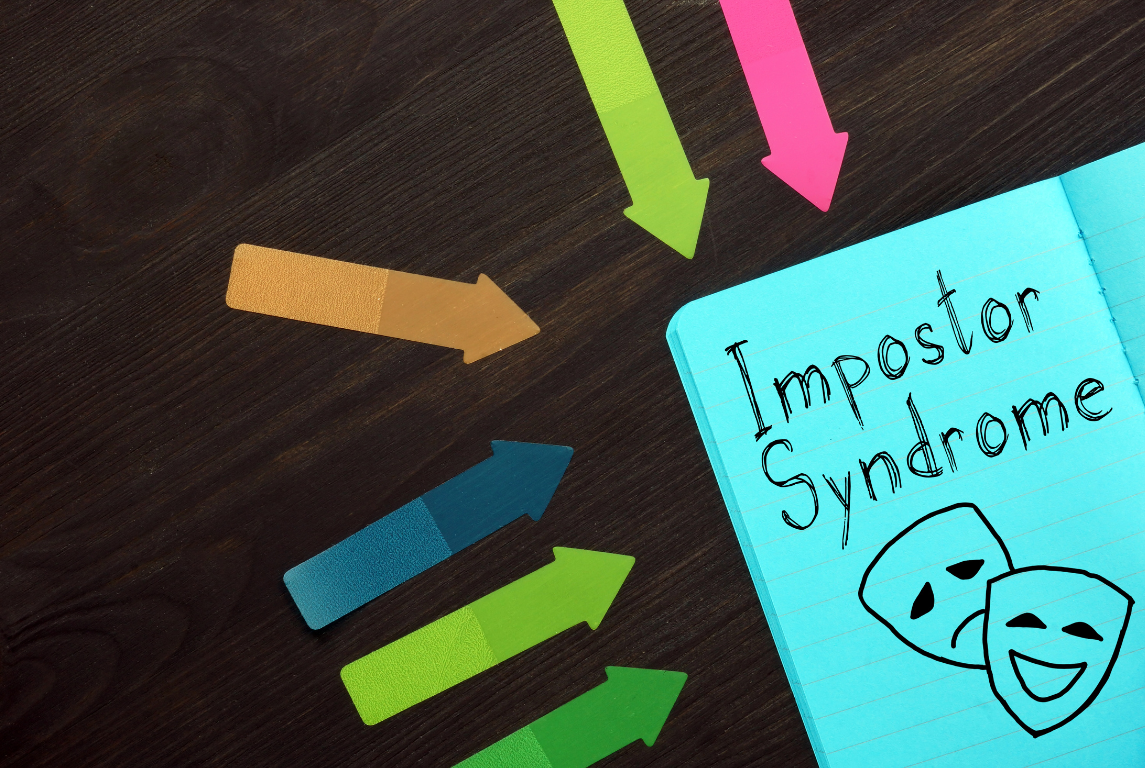 Impostor
Syndrome